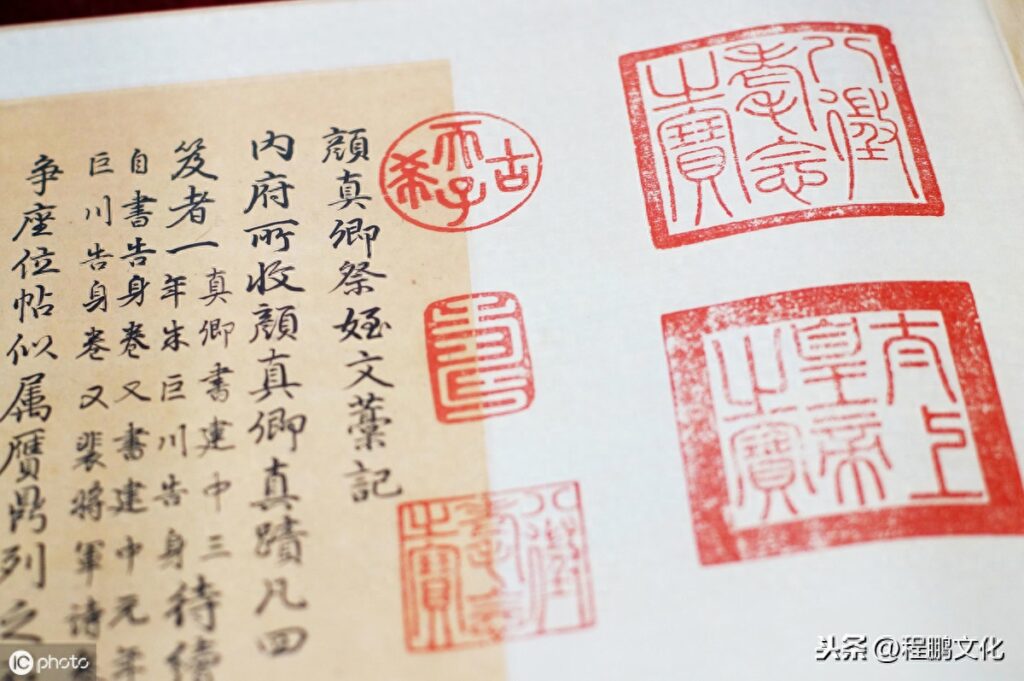 八徵耄念之寶
太上皇帝之寶
古希天子
壽
八徵耄念之寶
顔真卿祭姪文藁記
内府所收顔真卿真蹟凡四
笈者一真卿書建中三
年朱巨川告身待續
自書告身卷又書建中元年
巨川告身卷又裴將軍诗
争座位帖似属贗鼎列之
iC photo
头条 @程鹏文化